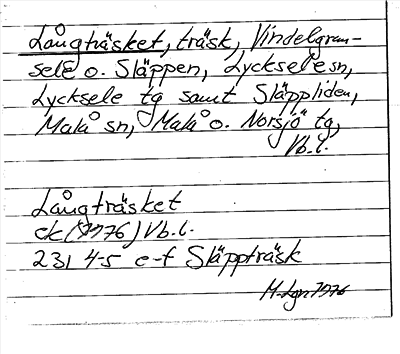 Långträsket, träsk, Vindelgran-
sele o. Släppen, Lycksele sn,
Lycksele tg samt Släppliden,
Malå sn, Malå o. Norsjö tg,
Vb.l.
Långträsket
ek (1976) Vb.l.
231 4-5 e-f Släppträsk
M-Lgn 1976